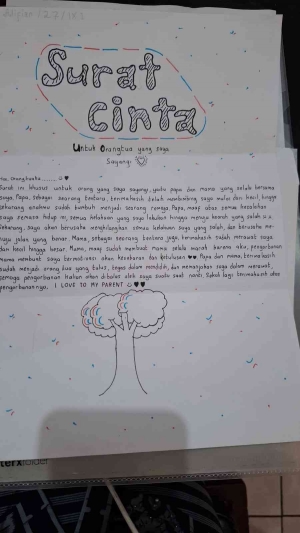 Surat
Cinta
Untuk Orangtua yang saya
Sayangi
Surat ini khusus untuk orang yang saya sayangi, yaitu papa dan mama yang selalu bersama
saya. Papa, sebagai seorang tentara, terimakasih telah membimbing saya mulai dari kecil, hingga
sekarang anakmu sudah tumbuh menjadi seorang remaja. Papa, maaf atas semua kesalahan
saya semasa hidup ini, semua kelakuan yang saya lakukan hingga menuju kearah yang salah.
Sekarang, saya akan berusaha menghilangkan semua kelakuan saya yang salah, dan berusaha me-
nuju jalan yang benar. Mama, sebagai seorang tentara juga, terimakasih sudah merawat saya
dari kecil hingga besar. Mama, maaf sudah membuat mama selalu marah karena aku, pengorbanan
mama membuat saya termotivasi akan kesabaran dan ketulusan. Papa dan mama, terimakasih
sudah menjadi orang tua yang tulus, tegas dalam mendidik, dan memanjakan saya dalam merawat,
semoga pengorbanan kalian akan dibalas oleh saya suatu saat nanti. Sekali lagi terimakasih atas
pengorbanannya. I LOVE TO MY PARENT